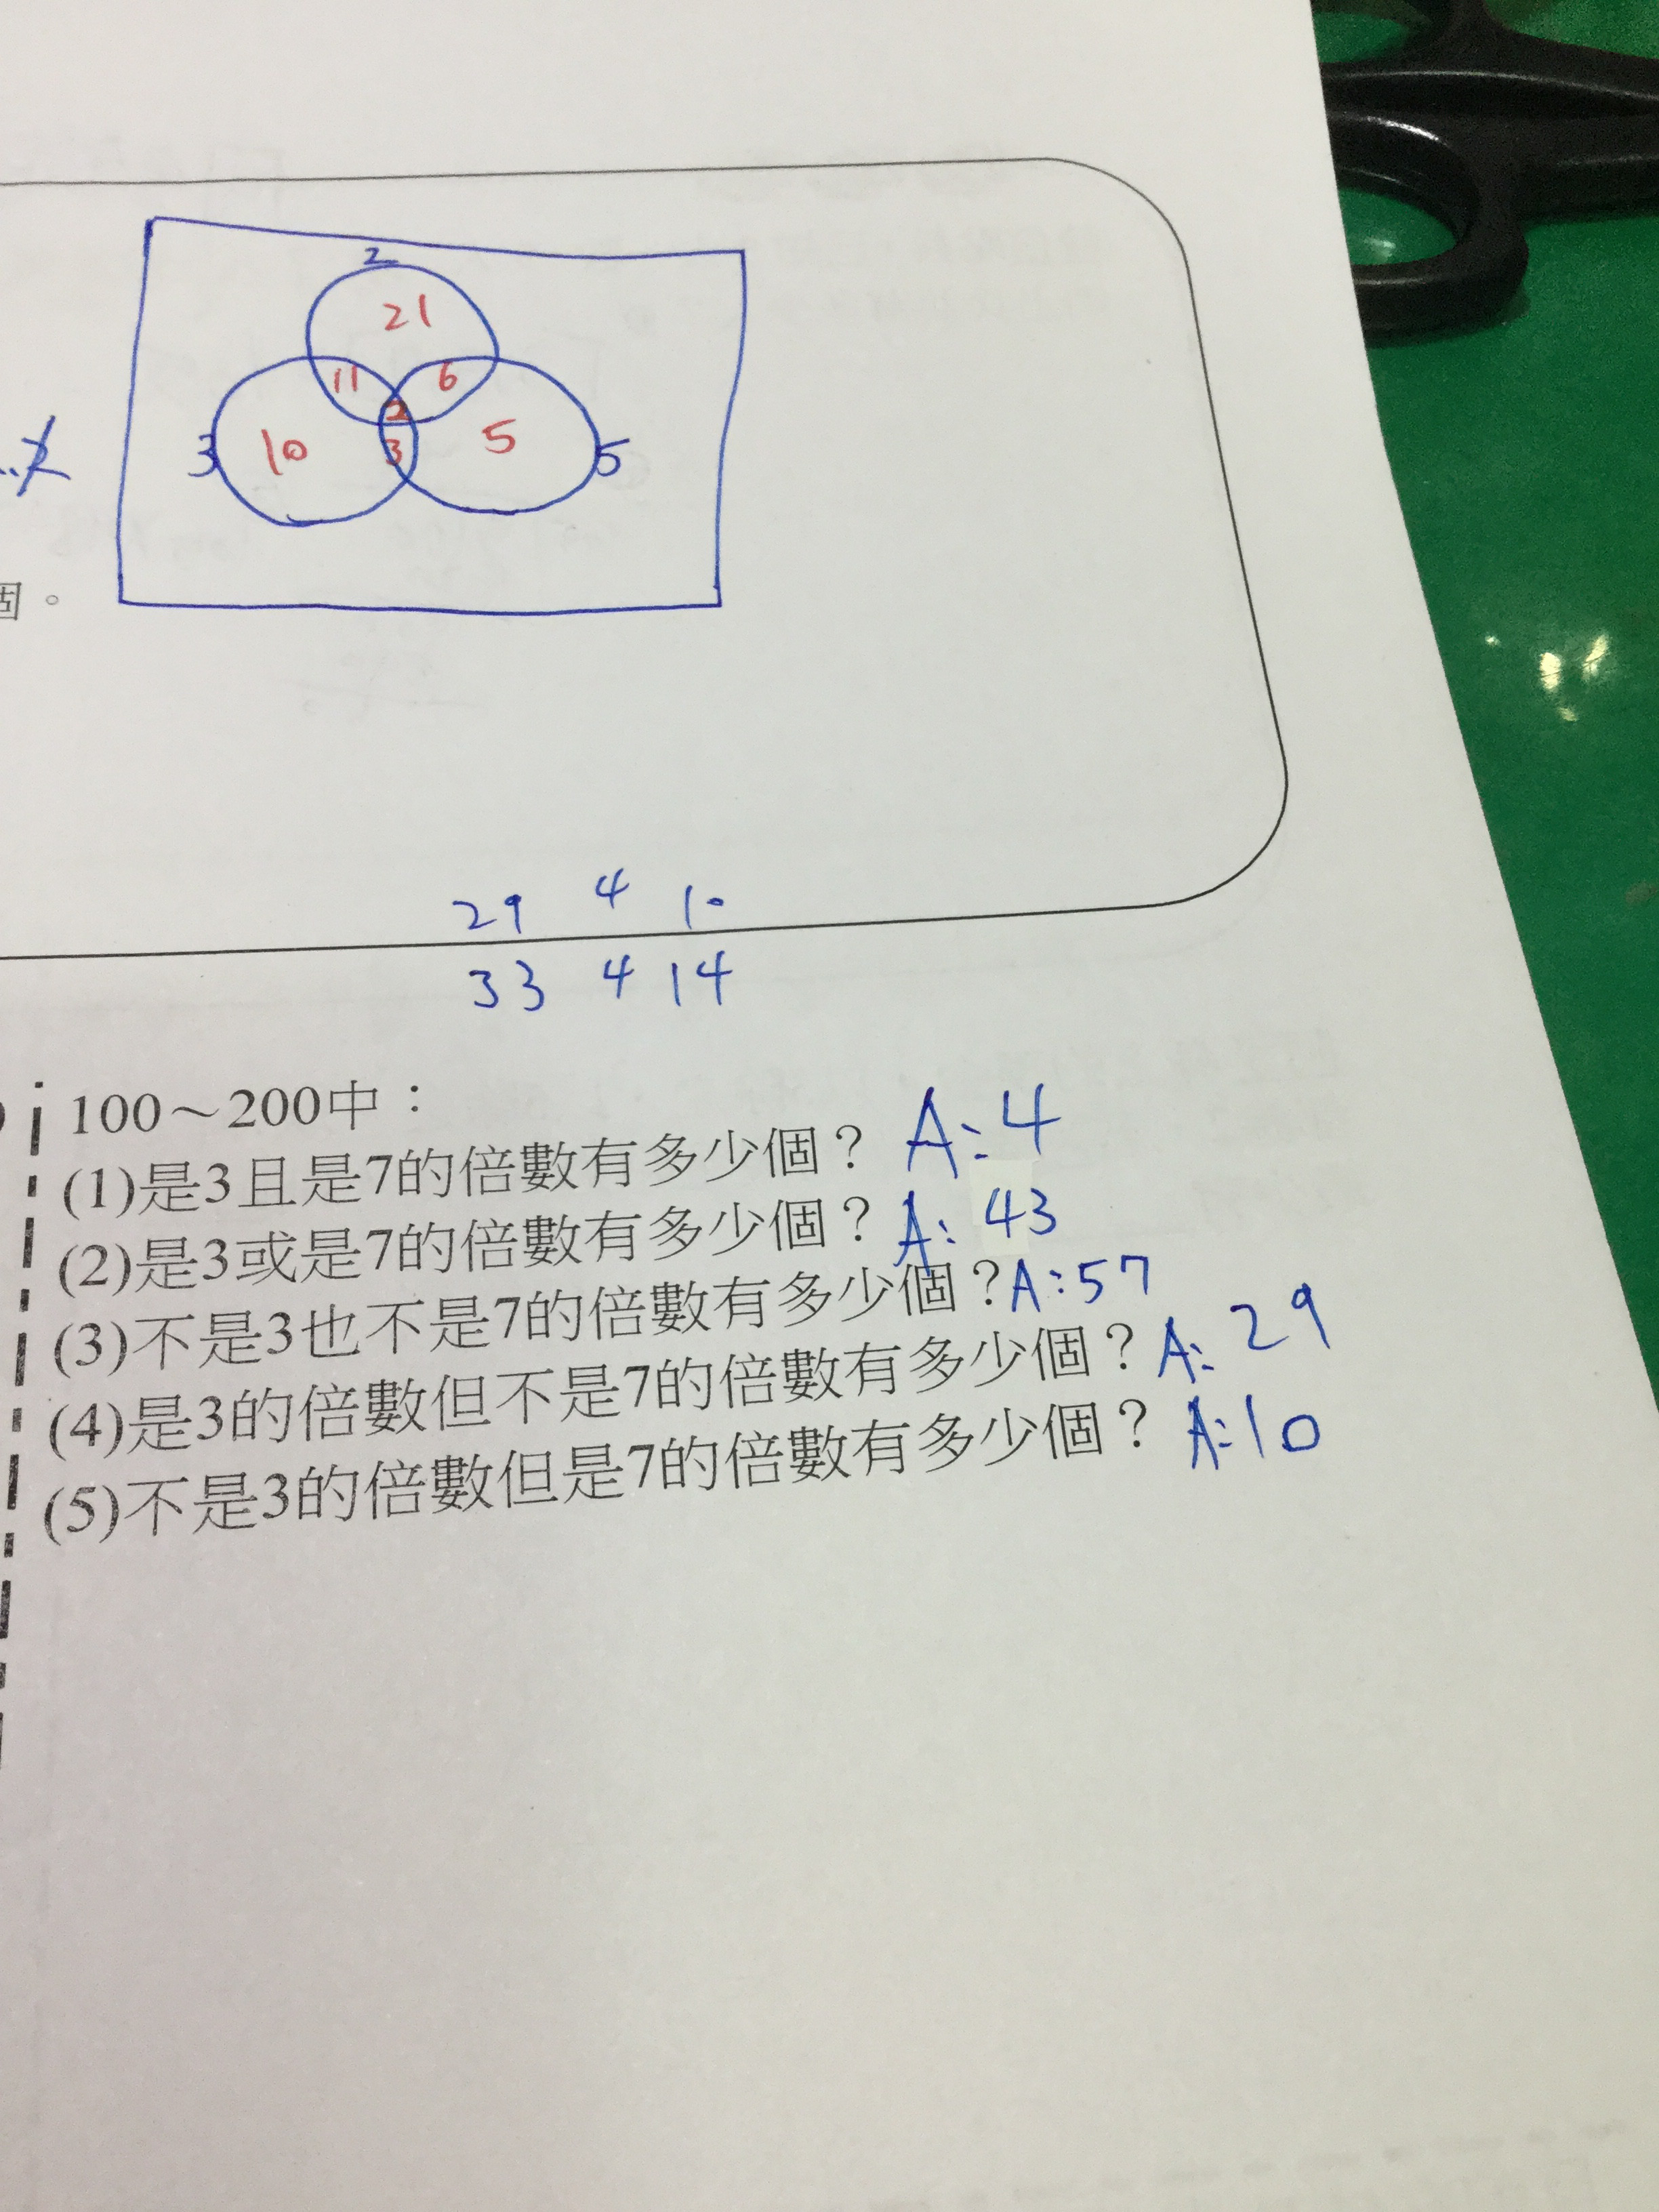 2
21
11 6
2
3 10 3 5 5
個。
29 4 10
33 4 14
100～200中：
(1)是3且是7的倍數有多少個？ A:4
(2)是3或是7的倍數有多少個？ A:43
(3)不是3也不是7的倍數有多少個？A:57
(4)是3的倍數但不是7的倍數有多少個？A:29
(5)不是3的倍數但是7的倍數有多少個？ A:10